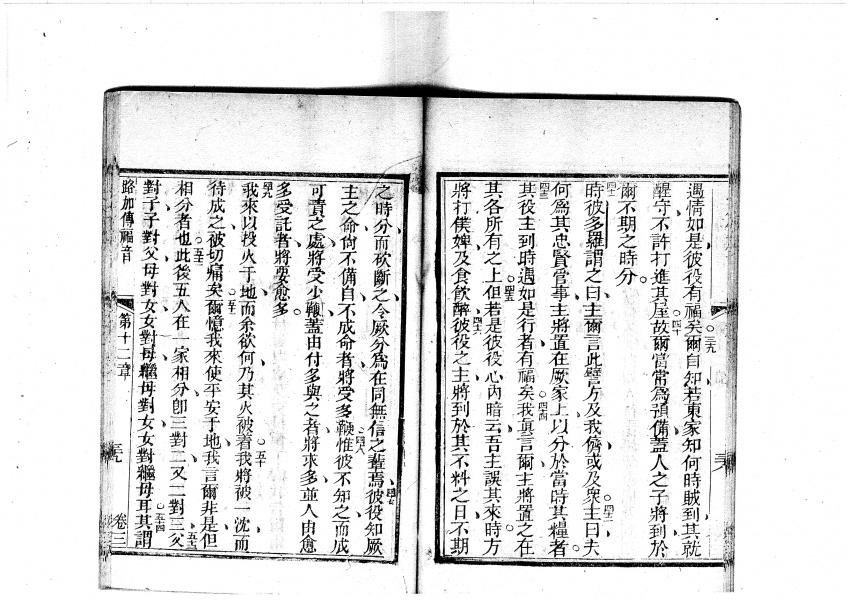 遇情如是彼役有福矣爾自知若東家知何時賊到其就
醒守不許打進其屋故爾當常為預備蓋人之子將到於
爾不期之時分
時彼多羅謂之曰主爾言此譬方及我儕或及衆主曰夫
何為其忠賢管事主將置在厥家上以分於當時其糧者
其役主到時遇如是行者有福矣我眞言爾主將置之在
其各所有之上但若是彼役心內暗云吾主誤其來時方
將打僕婢及食飲醉彼役之主將到於其不料之日不期
之時分而砍斷之令厥分為在同無信之輩焉彼役知厥
主之命尙不備自不成命者將受多鞭惟彼不知之而成
可責之處將受少鞭蓋由付多與之者將求多並人由愈
多受託者將要愈多
我來以投火于地而余欲何乃其火被着我將被一沈而
待成之被切痛矣爾憶我來使平安于地我言爾非是但
相分者也此後五人在一家相分卽三對二又二對三父
對子子對父母對女女對母繼母對女女對繼母耳其謂
路加傳福音
第十二章
卷三